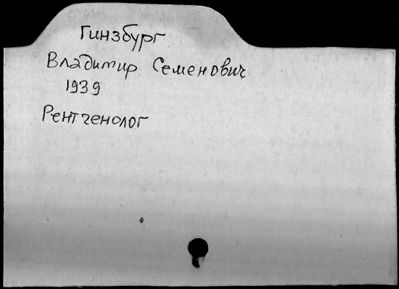 Гинзбург
Владимир Семенович
1939
Рентгенолог